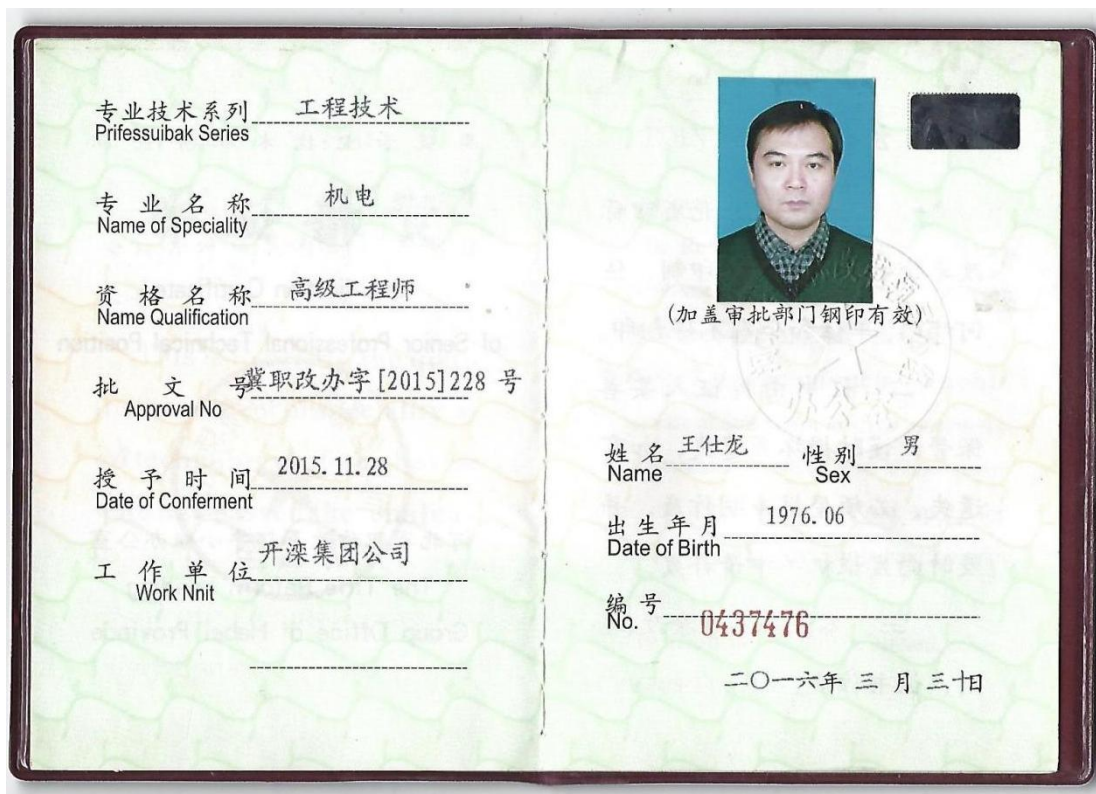 专业技术系列 工程技术
Prifessuibak Series
专业名称 机电
Name of Speciality
资格名称 高级工程师
Name Qualification
批文号 冀职改办字[2015]228 号
Approval No
授予时间 2015.11.28
Date of Conferment
工作单位 开滦集团公司
Work Nnit
(加盖审批部门钢印有效)
姓名 王仕龙 性别 男
Name Sex
出生年月 1976.06
Date of Birth
编号
No. 0437476
二〇一六年 三 月 三十日